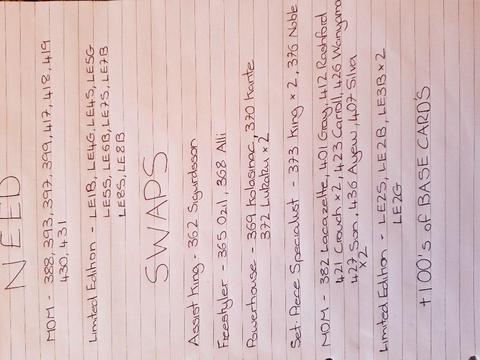 NEED
MOM - 388, 393, 397, 399, 417, 418, 419
430, 431
Limited Edition - LE1B, LE4G, LE4S, LE5G
LE5S, LE6B, LE7S, LE7B
LE8S, LE8B
SWAPS
Assist King - 362 Sigurdsson
Freestyler - 365 Ozil, 368 Alli
Powerhouse - 369 Kolasinac, 370 Kante
372 Lukaku x2
Set Piece Specialist - 373 King x2, 376 Noble
MOM - 382 Lacazette, 401 Gray, 412 Rashford
421 Crouch x2, 423 Carroll, 426 Wanyama
427 Son, 436 Ayew, 407 Silva
x2
Limited Edition - LE2S, LE2B, LE3B x2
LE2G
+100's of BASE CARD'S